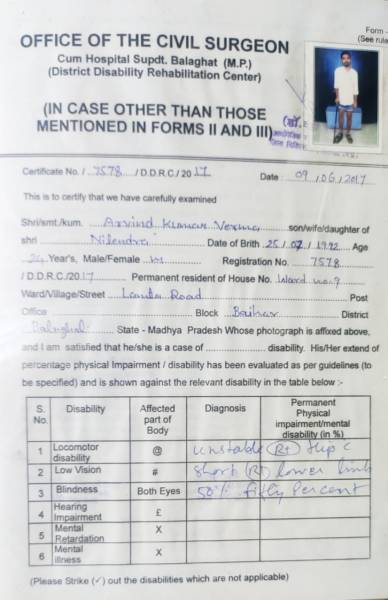 Form -
(See rule
OFFICE OF THE CIVIL SURGEON
Cum Hospital Supdt. Balaghat (M.P.)
(District Disability Rehabilitation Center)
(IN CASE OTHER THAN THOSE
MENTIONED IN FORMS II AND III)
Certificate No. / 7578 /D.D.R.C/2017 Date : 09/06/2017
This is to certify that we have carefully examined
Shri/smt./kum. Arvind Kumar Verma son/wife/daughter of
shri Date of Birth 25/07/1992 Age
24 Year's, Male/Female M Registration No. 7578
/D.D.R.C./2017 Permanent resident of House No. Ward no. 9
Ward/Village/Street Road Post
Office Block Baihar District
Balaghat State - Madhya Pradesh Whose photograph is affixed above,
and I am satisfied that he/she is a case of disability. His/Her extend of
percentage physical Impairment / disability has been evaluated as per guidelines (to
be specified) and is shown against the relevant disability in the table below :-
S. No. Disability Affected part of Body Diagnosis Permanent Physical impairment/mental disability (in %)
1 Locomotor disability @ Unstable (Rt) Hip c
2 Low Vision # Short (Rt) lower limb
3 Blindness Both Eyes 50% fifty Percent
4 Hearing Impairment £
5 Mental Retardation X
6 Mental illness X
(Please Strike (✓) out the disabilities which are not applicable)